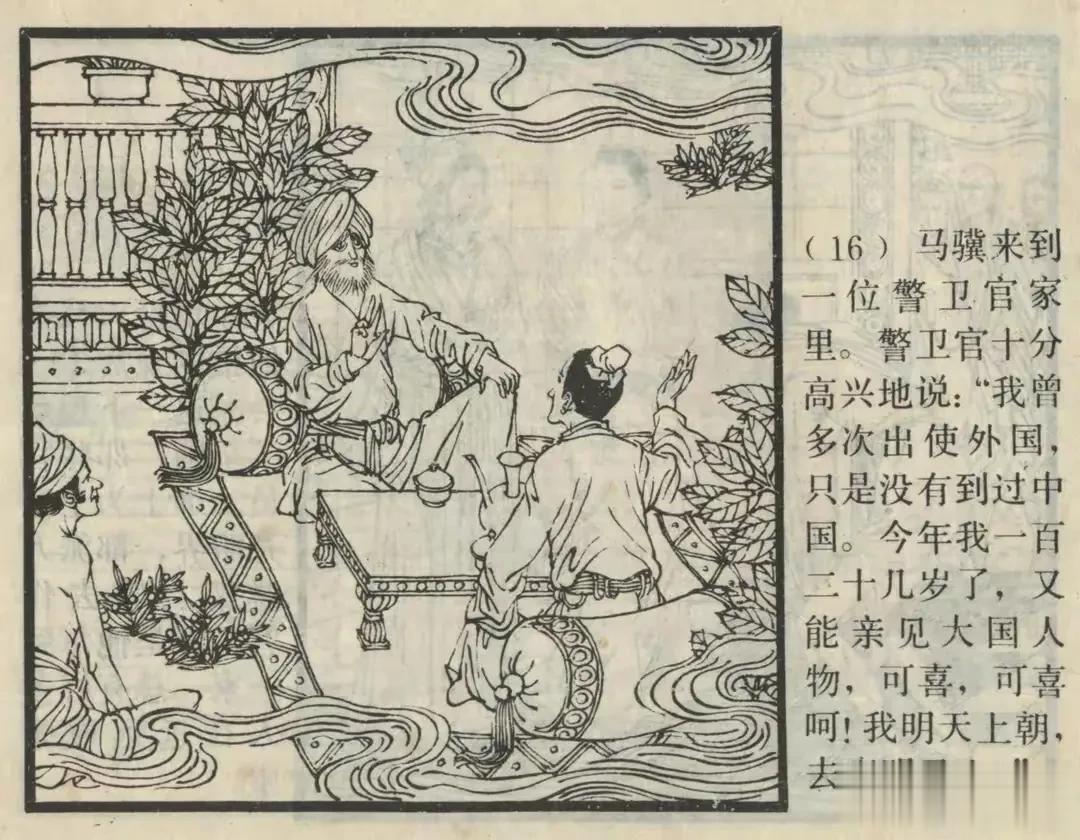 （16）马骥来到
一位警卫官家
里。警卫官十分
高兴地说：“我曾
多次出使外国，
只是没有到过中
国。今年我一百
二十几岁了，又
能亲见大国人
物，可喜，可喜
呵！我明天上朝，
去